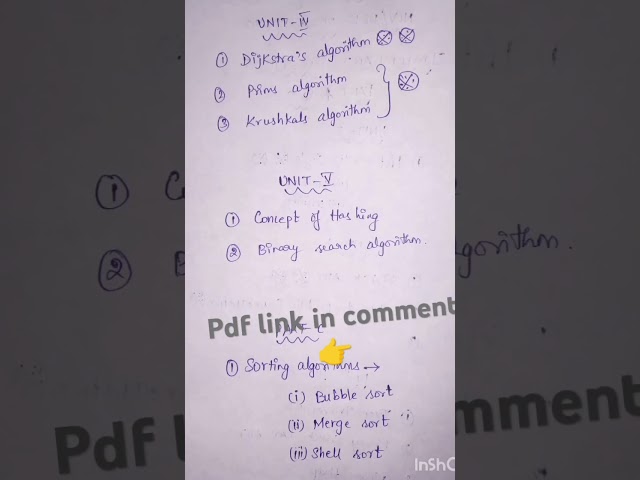 UNIT-IV
① Dijkstra's algorithm
② Prims algorithm
③ Krushkals algorithm
UNIT-V
① Concept of Hashing
② Binary search algorithm.
Pdf link in comment
① Sorting algorithms →
(i) Bubble sort
(ii) Merge sort
(iii) Shell sort
InSh